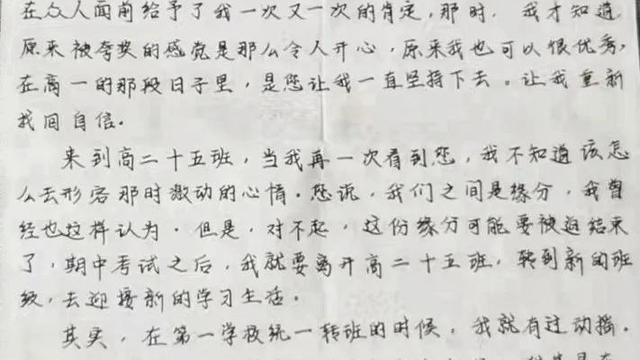 在众人面前给予了我一次又一次的肯定,那时,我才知道
原来被夸奖的感觉是那么令人开心,原来我也可以很优秀,
在高一的那段日子里,是您让我一直坚持下去。让我重新
找回自信.
来到高二十五班,当我再一次看到您,我不知道该怎
么去形容那时激动的心情.您说,我们之间是缘分,我曾
经也这样认为.但是,对不起,这份缘分可能要被迫结束
了,期中考试之后,我就要离开高二十五班,转到新的班
级,去迎接新的学习生活。
其实,在第一学校统一转班的时候,我就有过动摇.